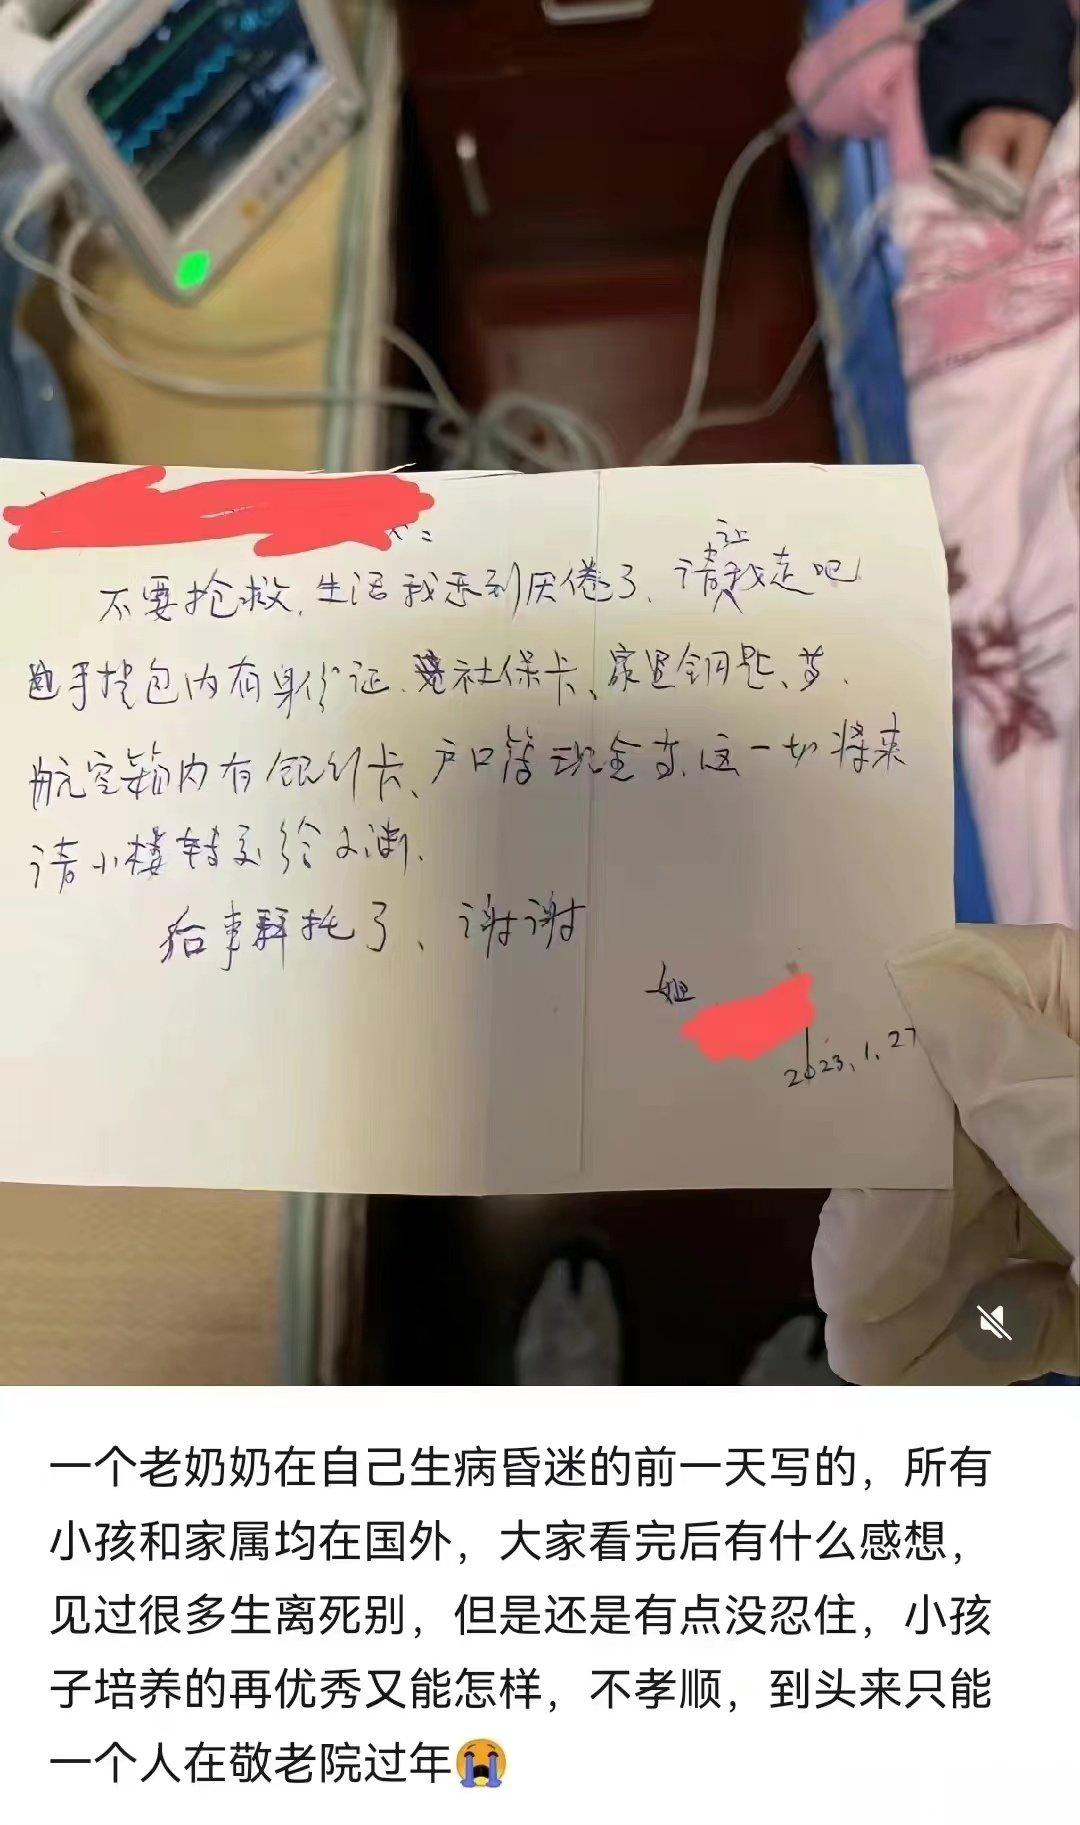 不要抢救,生活我感到厌倦了、请让我走吧
手提包内有身份证、社保卡、家里钥匙、等.
航空箱内有银行卡、户口簿现金等,这一切将来
请小楼转交给
后事拜托了、谢谢
姐
2023.1.27
一个老奶奶在自己生病昏迷的前一天写的，所有
小孩和家属均在国外，大家看完后有什么感想，
见过很多生离死别，但是还是有点没忍住，小孩
子培养的再优秀又能怎样，不孝顺，到头来只能
一个人在敬老院过年😭